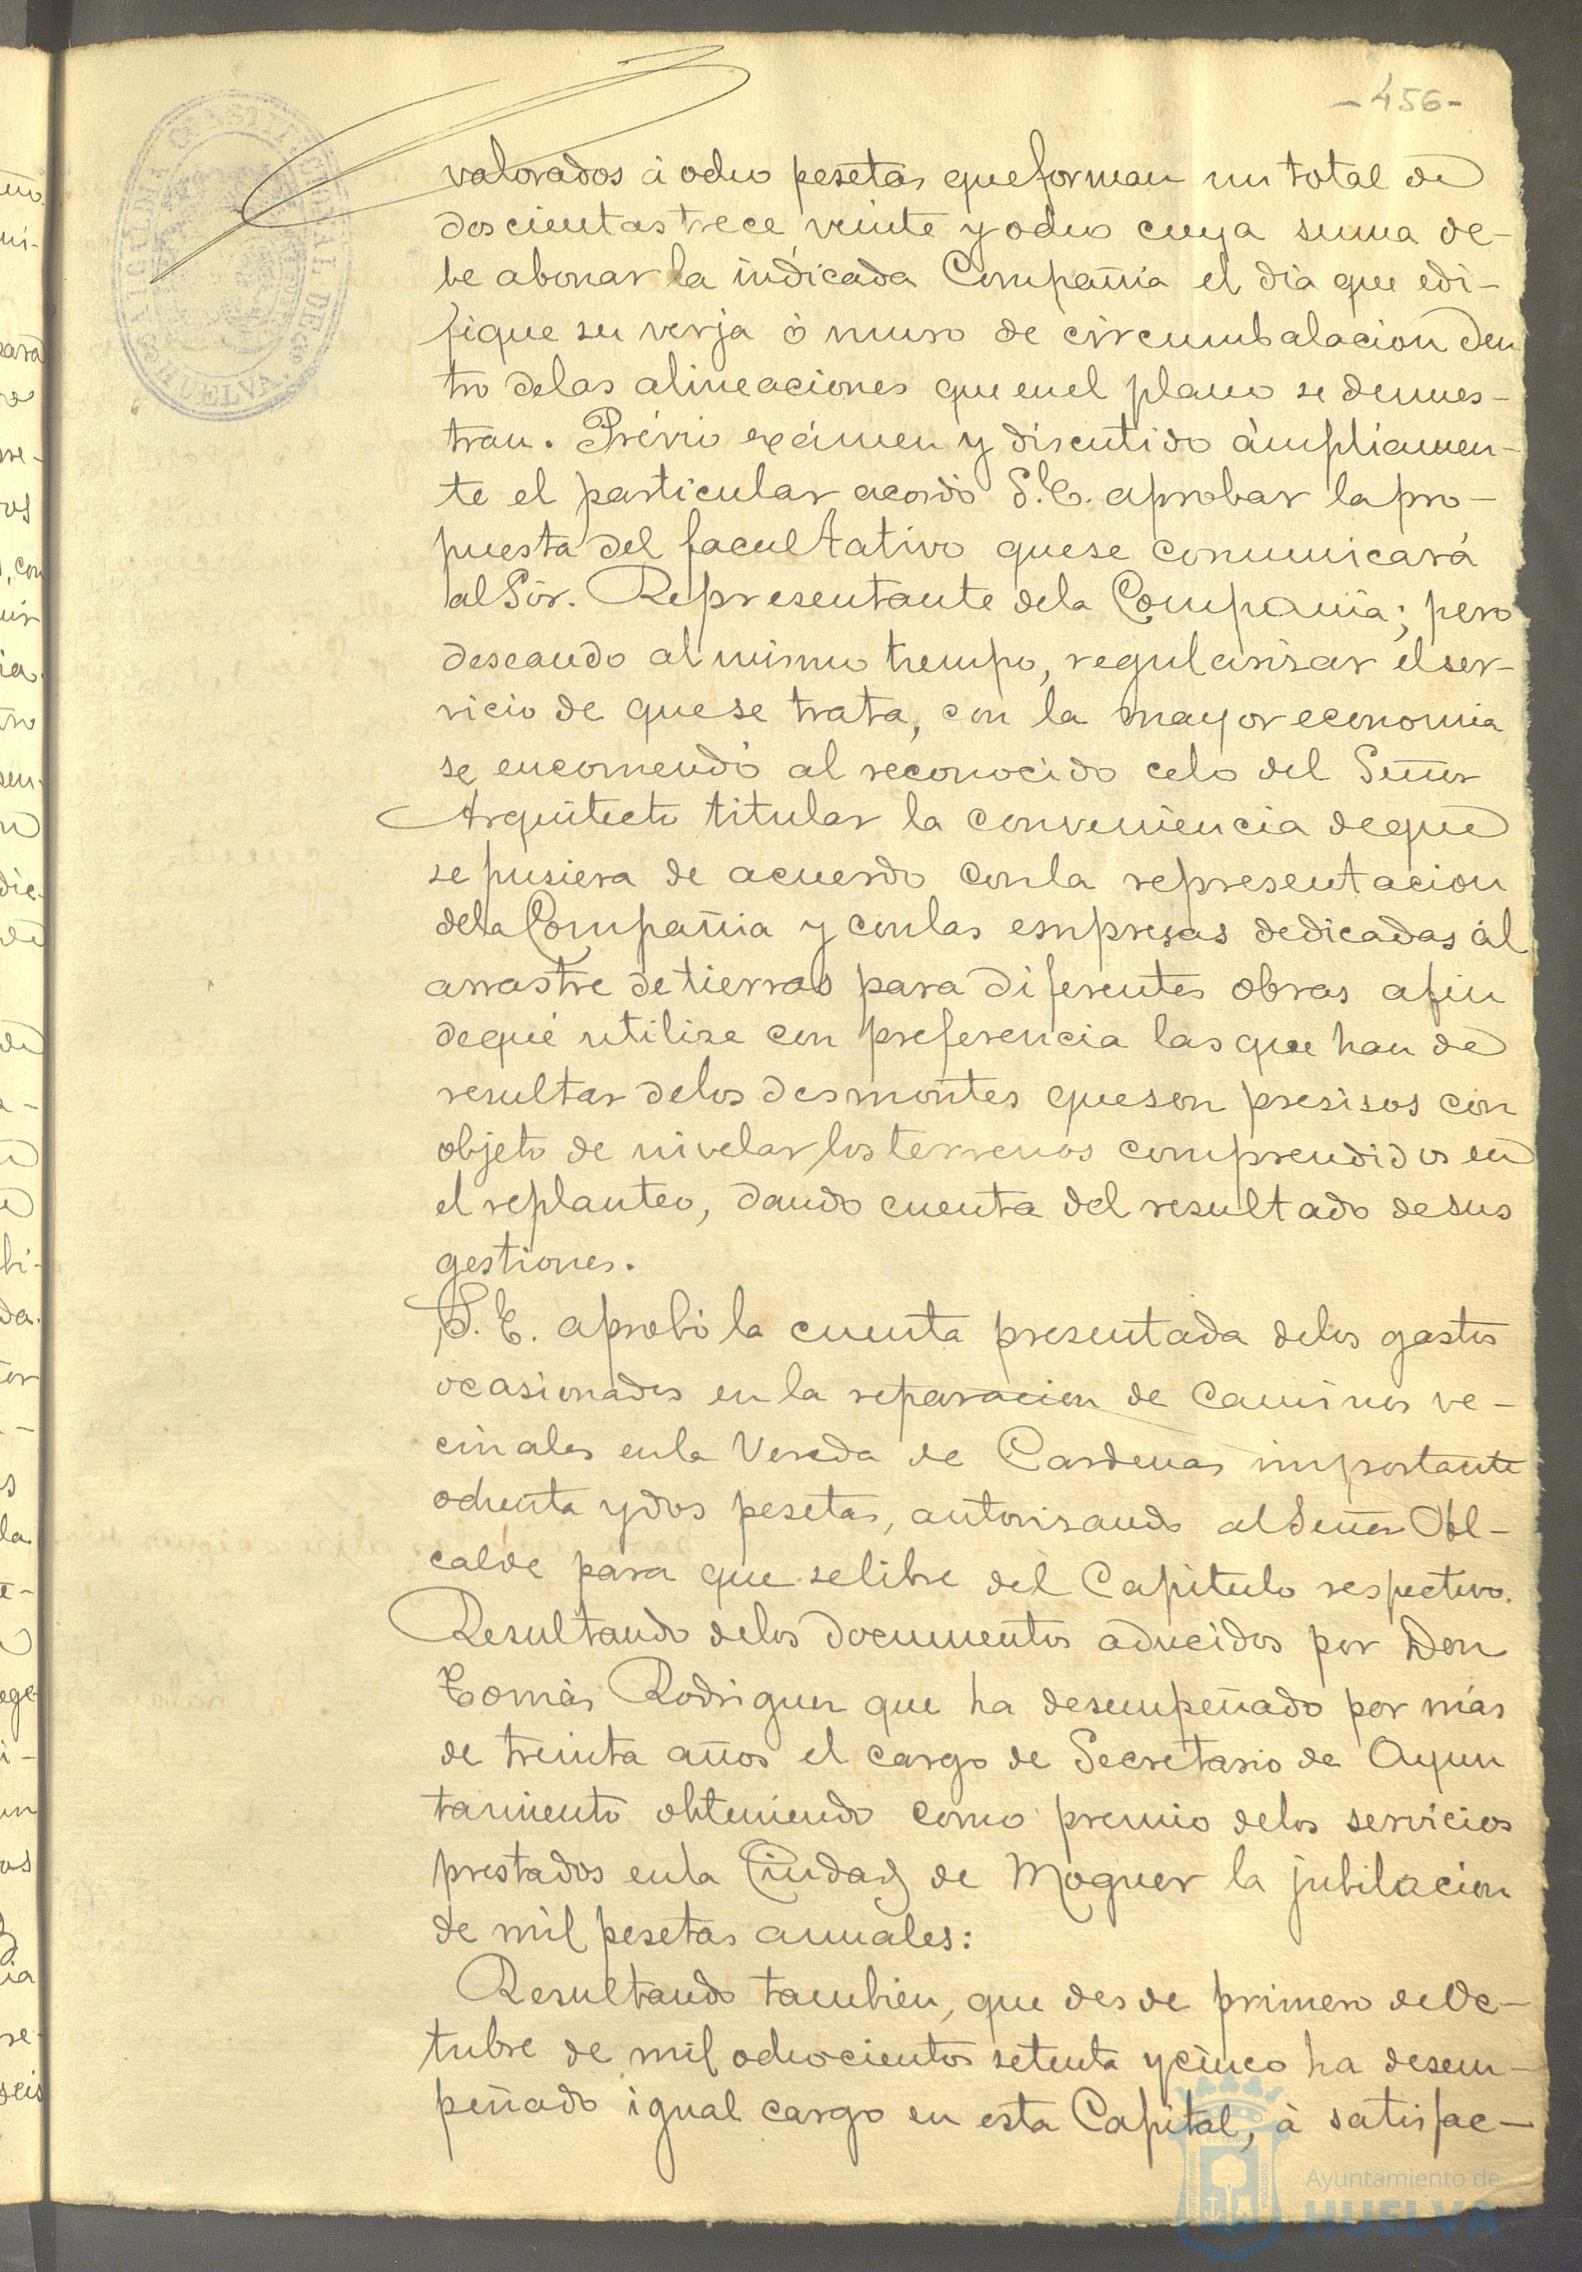 -456-
ALCALDIA CONSTITUCIONAL DE HUELVA.
valorados á ocho pesetas que forman un total de
doscientas trece veinte y ocho cuya suma de-
be abonar la indicada Compañia el dia que edi-
fique su verja ó muro de circumbalacion den
tro de las alineaciones que en el plano se demues-
tran. Prévio exámen y discutido ámpliamen-
te el particular acordó S.E. aprobar la pro-
puesta del facultativo que se comunicará
al Sór. Representante de la Compania; pero
deseando al mismo tiempo, regularisar el ser-
vicio de que se trata, con la mayor economia
se encomendó al reconocido celo del Señor
Arquitecto titular la conveniencia de que
se pusiera de acuerdo con la representacion
de la Compañia y con las empresas dedicadas ál
arrastre de tierras para diferentes obras a fin
de qué utilize con preferencia las que han de
resultar de los desmontes que son presisos con
objeto de nivelar los terrenos comprendidos en
el replanteo, dando cuenta del resultado de sus
gestiones.
S. E. aprobó la cuenta presentada de los gastos
ocasionados en la reparacion de caminos ve-
cinales en la Vereda de Cardenas importante
ochenta y dos pesetas, autorisando al Señor Al-
calde para que se libre del Capitulo respectivo.
Resultando de los documentos aducidos por Don
Tomás Rodriguez que ha desempeñado por más
de treinta años el cargo de Secretario de Ayun
tamiento obteniendo como premio de los servicios
prestados en la Ciudad de Moguer la jubilacion
de mil pesetas annuales:
Resultando tambien, que desde primero de Oc-
tubre de mil ochocientos setenta y cinco ha desem-
peñado igual cargo en esta Capital, á satisfac-
Ayuntamiento de
HUELVA